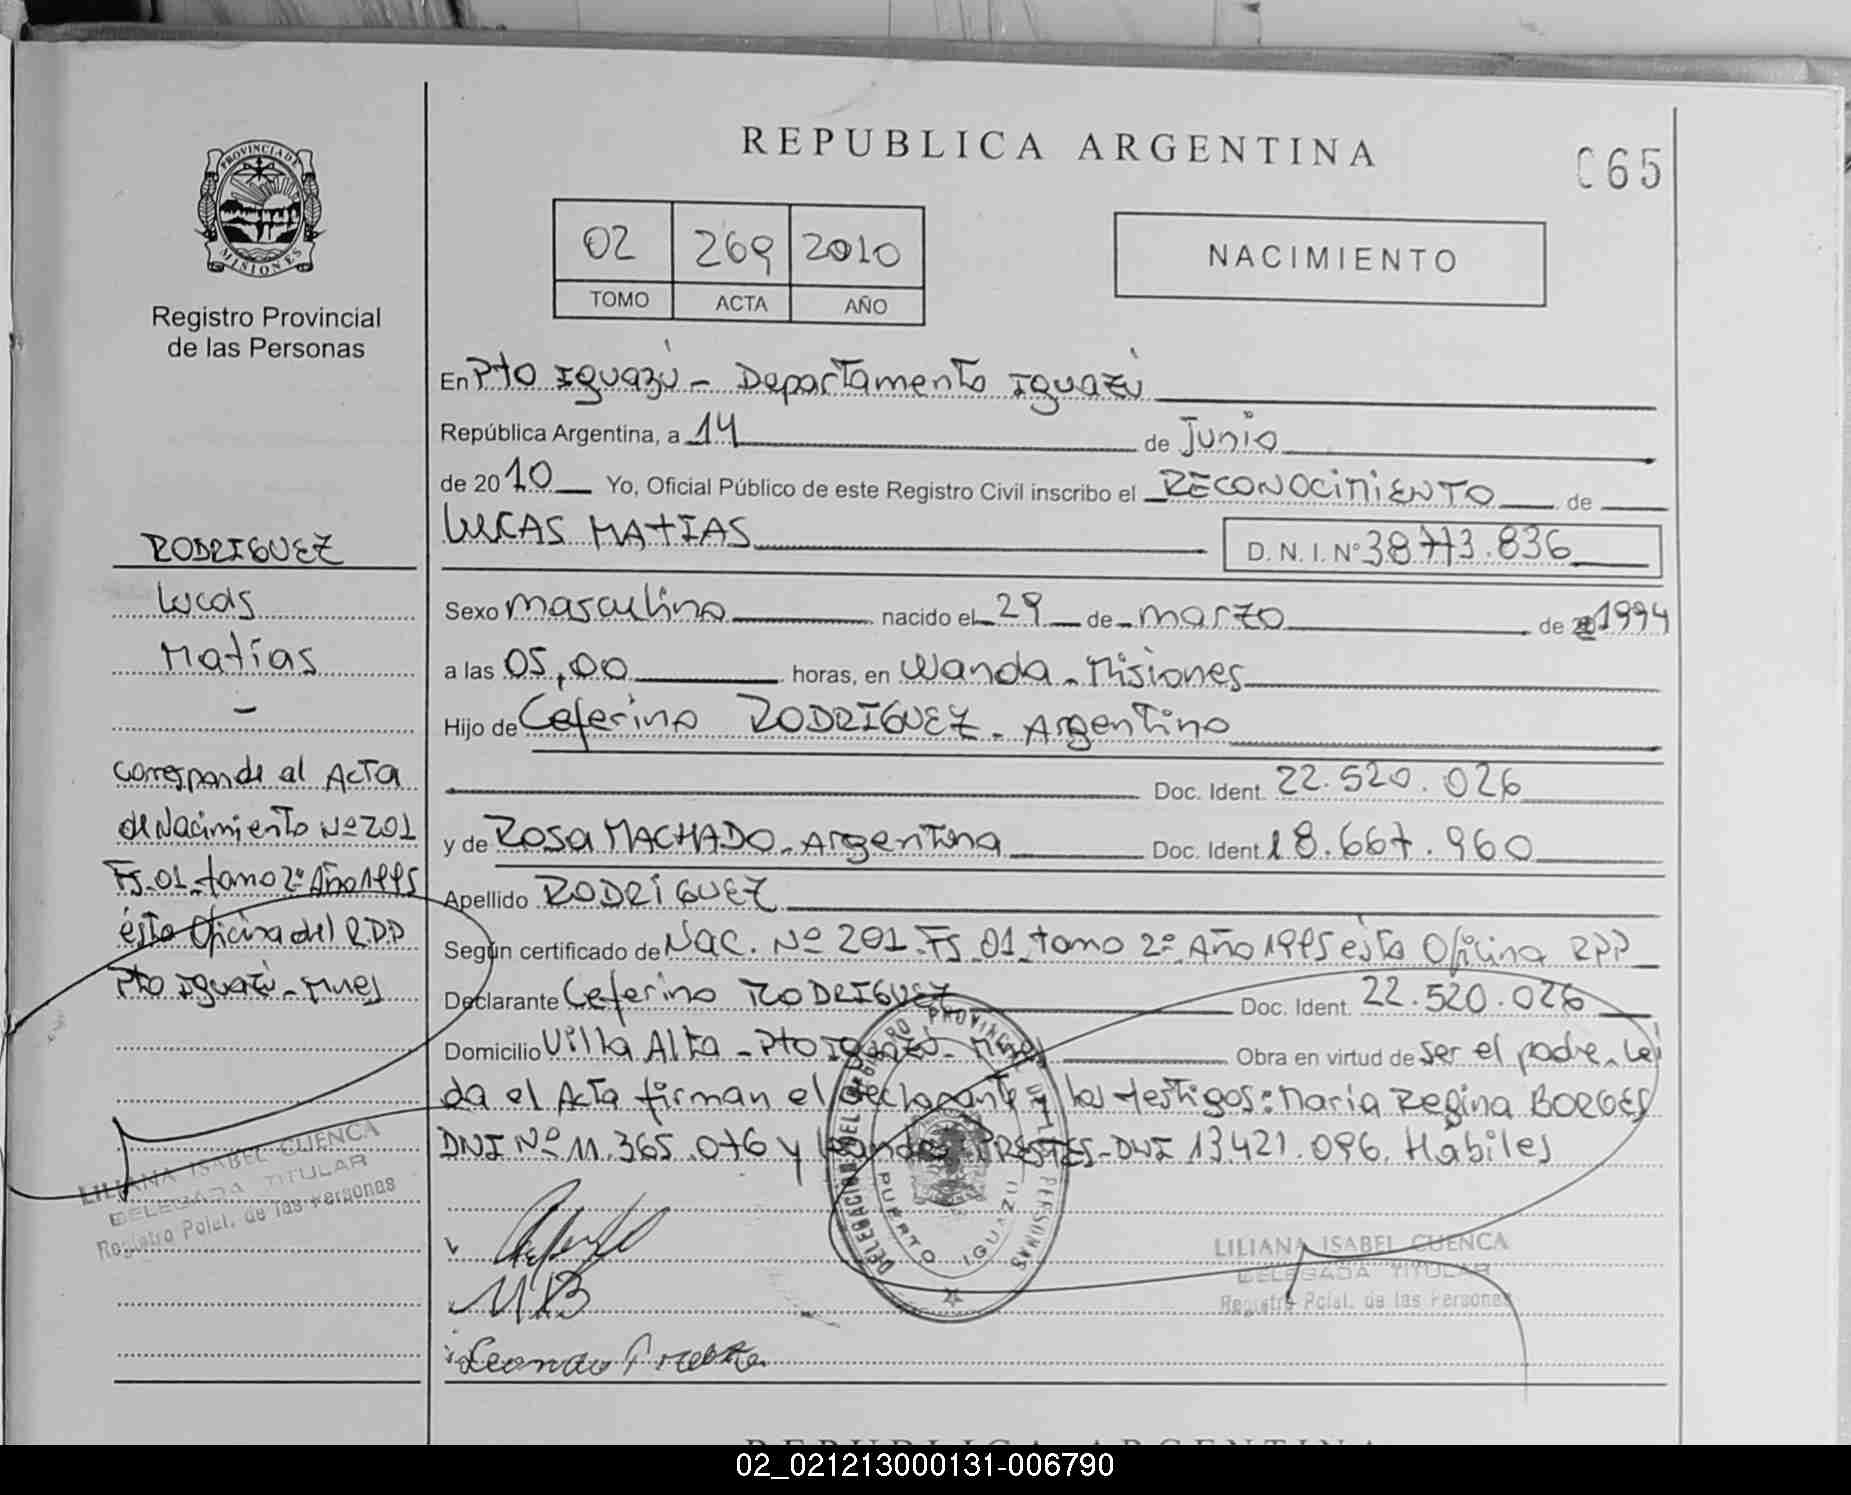 REPUBLICA ARGENTINA
065
PROVINCIA DE
MISIONES
Registro Provincial
de las Personas
02 269 2010
TOMO ACTA AÑO
NACIMIENTO
En Pto Iguazú - Departamento Iguazú
República Argentina, a 14 de Junio
de 2010 Yo, Oficial Público de este Registro Civil inscribo el RECONOCIMIENTO de
LUCAS MATIAS D. N. I. Nº 38.773.836
Sexo masculino nacido el 29 de marzo de 1994
a las 05,00 horas, en Wanda - Misiones
Hijo de Ceferino RODRIGUEZ - Argentino
Doc. Ident. 22.520.026
y de Rosa MACHADO - Argentina Doc. Ident. 18.667.960
Apellido RODRIGUEZ
Según certificado de Nac. Nº 201 - Fs 01 - tomo 2º - Año 1995 ésta Oficina RPP
Declarante Ceferino RODRIGUEZ Doc. Ident. 22.520.026
Domicilio Villa Alta - Pto Iguazú - Mnes Obra en virtud de ser el padre - Leí
da el Acta firman el declarante y los testigos: María Regina BORGES
DNI Nº 11.365.076 y PRESTES - DNI 13.421.096. Hábiles
RODRIGUEZ
Lucas
Matías
-
corresponde al Acta
de Nacimiento Nº 201
Fs. 01 - tomo 2º Año 1995
ésta Oficina del R.P.P
Pto Iguazú - Mnes
LILIANA ISABEL CUENCA
DELEGADA TITULAR
Registro Pcial. de las Personas
PUERTO IGUAZU
MB
LILIANA ISABEL CUENCA
DELEGADA TITULAR
Registro Pcial. de las Personas
REPUBLICA ARGENTINA
02_021213000131-006790